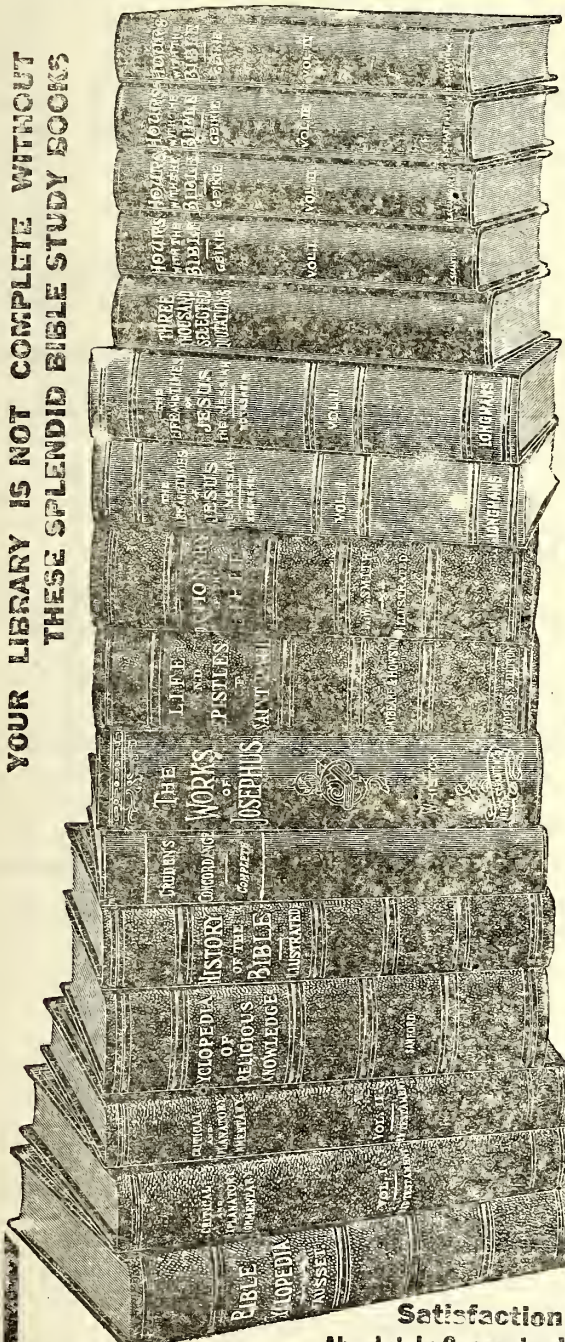 YOUR LIBRARY IS NOT COMPLETE WITHOUT
THESE SPLENDID BIBLE STUDY BOOKS
HOURS
WITH THE
BIBLE
GEIKIE
VOL. IV
HOURS
WITH THE
BIBLE
GEIKIE
VOL. III
HOURS
WITH THE
BIBLE
GEIKIE
VOL. II
HOURS
WITH THE
BIBLE
GEIKIE
VOL. I
THREE
THOUSAND
SELECTED
QUOTATIONS
THE
LIFE AND TIMES
OF
JESUS
THE MESSIAH
VOL. II
LONGMANS
THE
LIFE AND TIMES
OF
JESUS
THE MESSIAH
VOL. I
LONGMANS
BIBLE
ILLUSTRATED
LIFE
AND
EPISTLES
OF
SAINT PAUL
PEOPLES EDITION
THE
WORKS
OF
JOSEPHUS
WHISTON
CRUDEN'S
CONCORDANCE
COMPLETE
HISTORY
OF THE
BIBLE
ILLUSTRATED
CYCLOPEDIA
OF
RELIGIOUS
KNOWLEDGE
SANFORD
CRITICAL
AND
EXPLANATORY
COMMENTARY
VOL. II
CRITICAL
AND
EXPLANATORY
COMMENTARY
VOL. I
BIBLE
CYCLOPEDIA
FAUSSET
Satisfaction
Absolutely Guaranteed